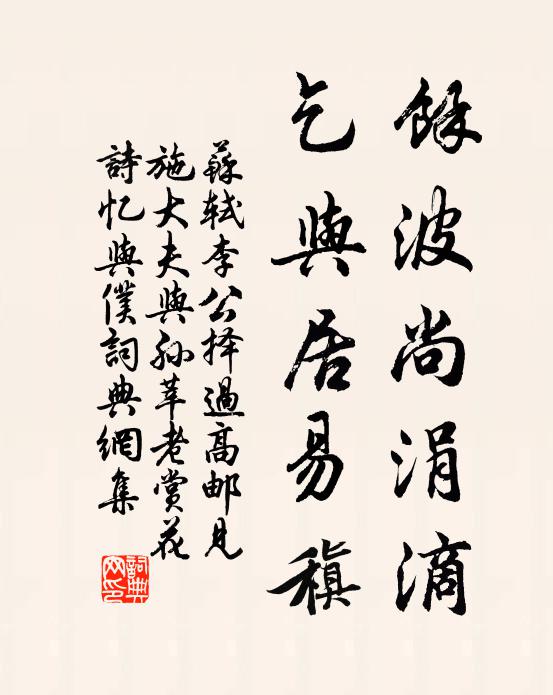 餘波尚涓滴
乞與居易稹
蘇軾李公择過高邮見
施大夫與孙莘老賞花
詩忆與僕詞典網集
詞典网印